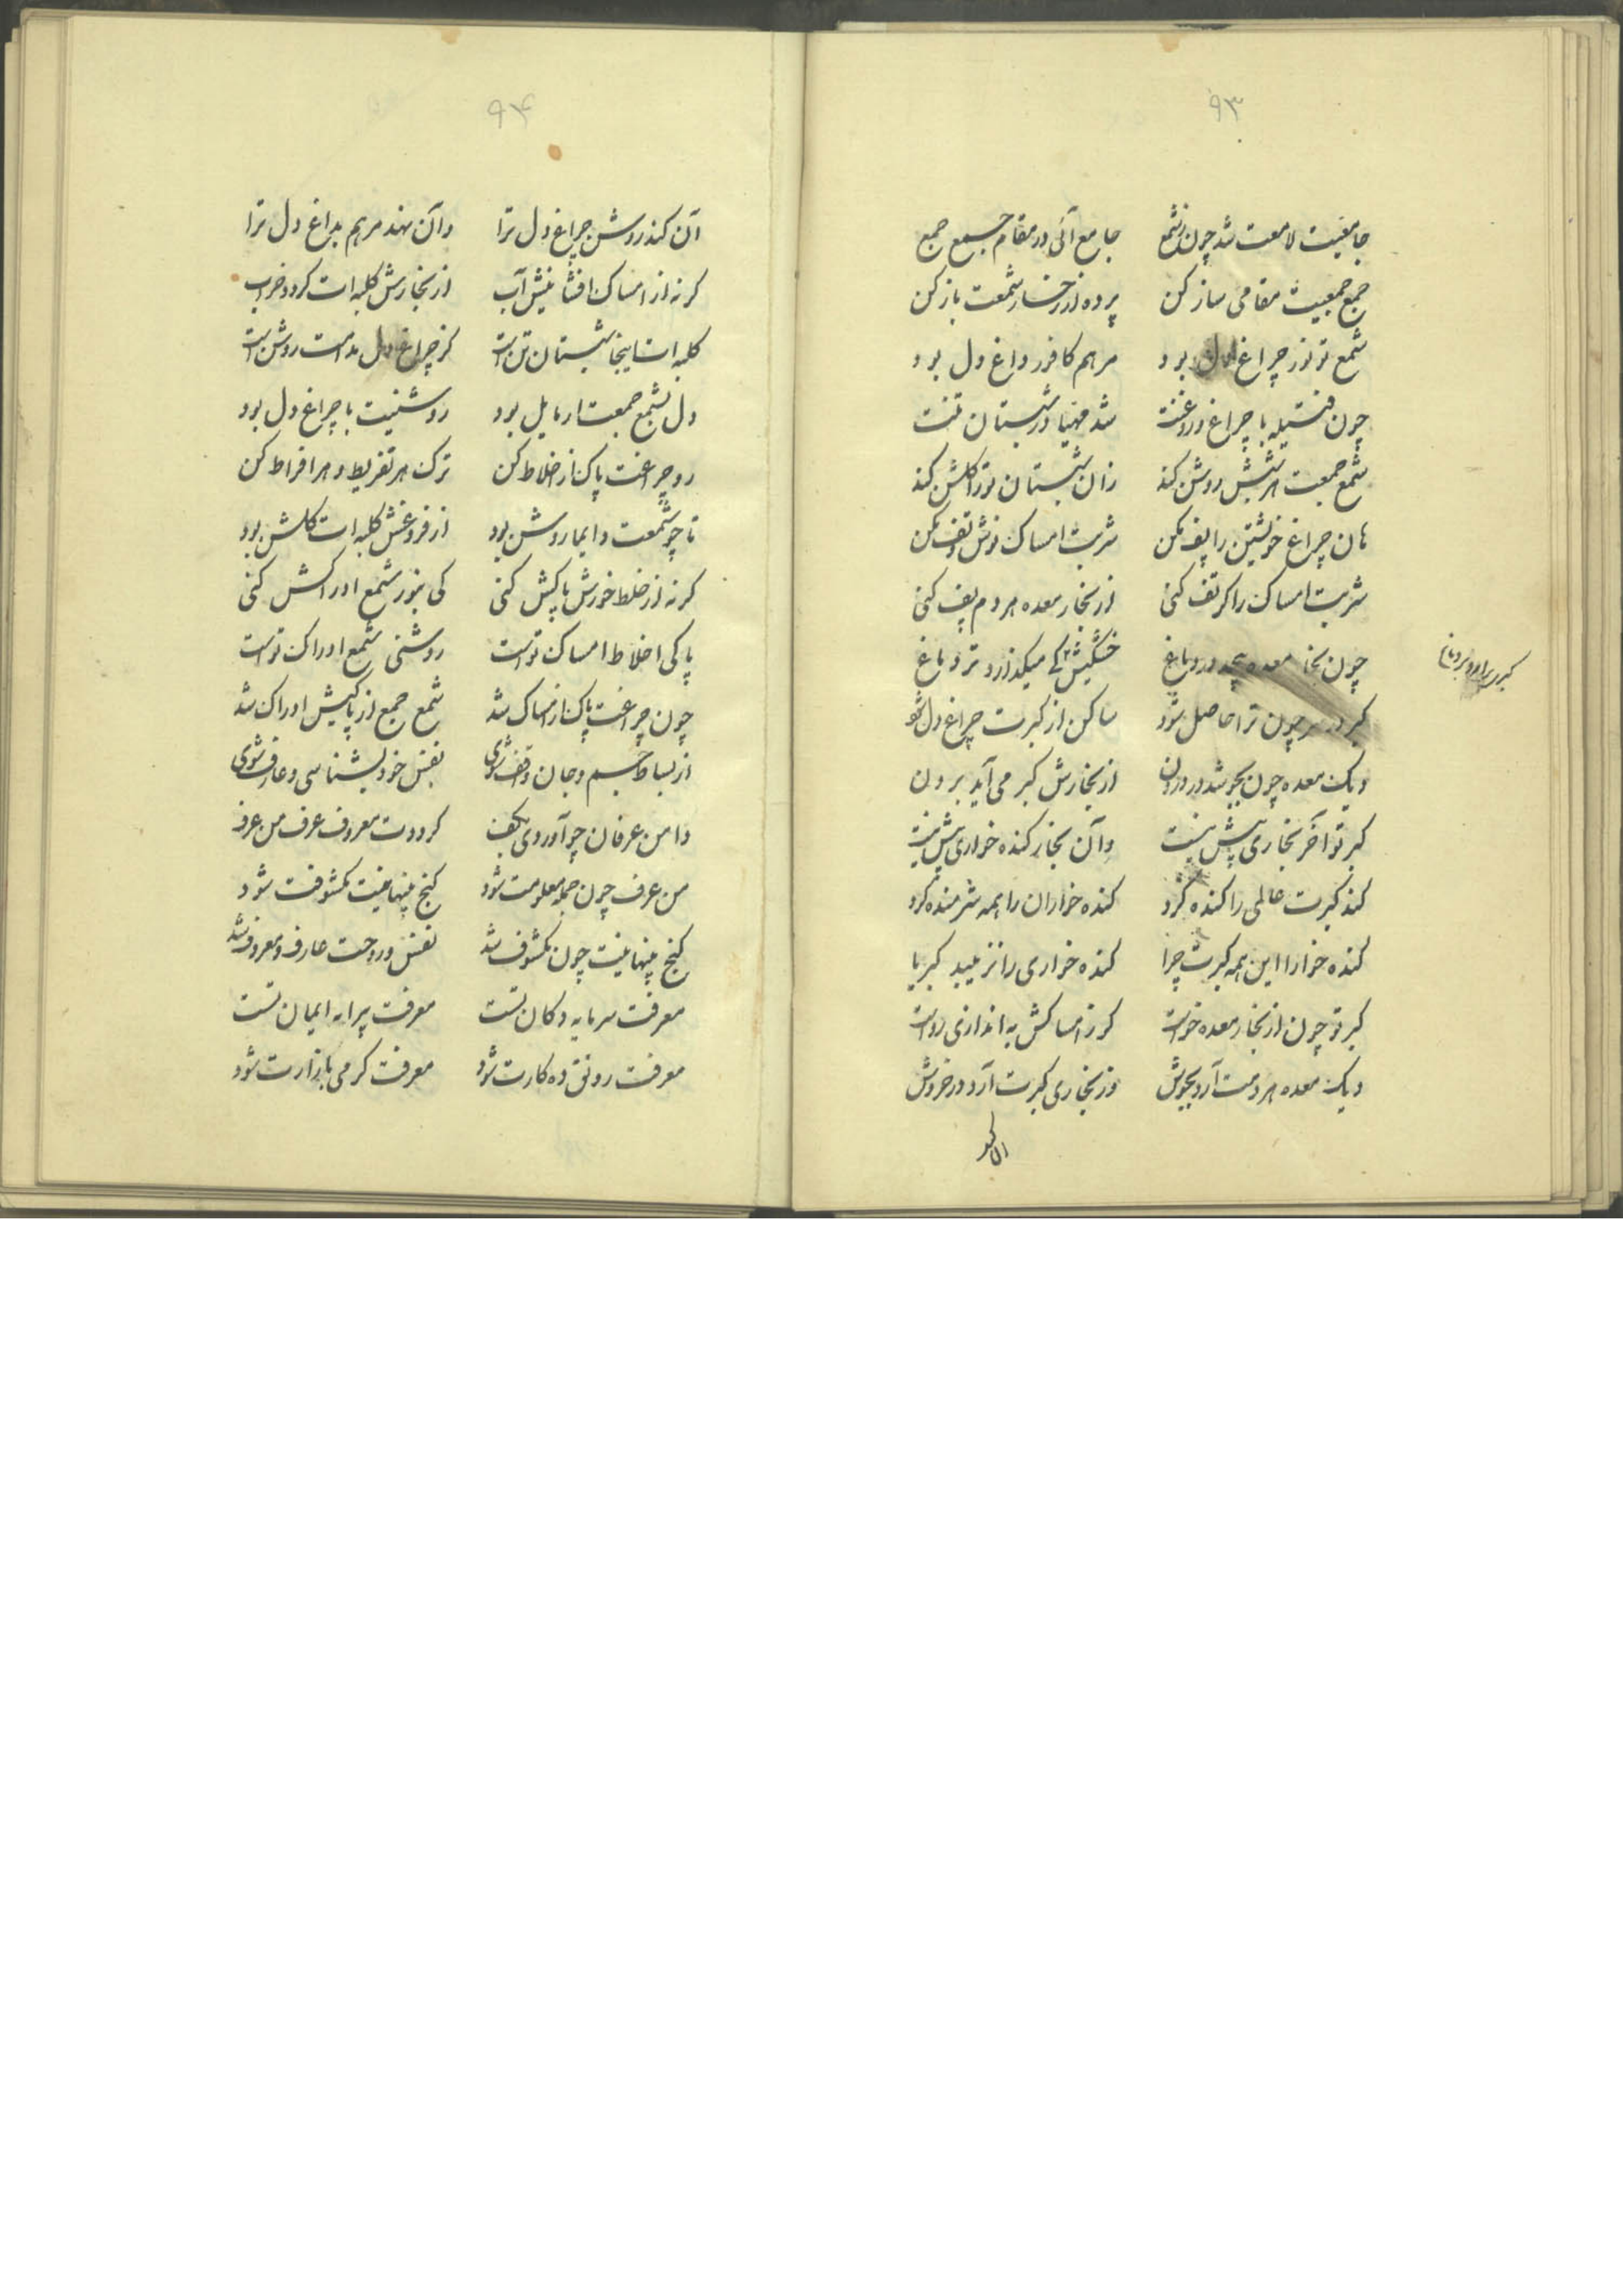 ۹۳
جامعیت لامعت شد چون ز شمع جامع آئی در مقام جمع جمع
جمع جمعیت مقامی ساز کن پرده از رخسار شمعت باز کن
شمع تو نور چراغ دل بود مرهم کافور داغ دل بود
چون فتیله با چراغ و روغنت شد مهیا در شبستان تنت
شمع جمعت آتشش روشن کند زان شبستان تو را کلشن کند
هان چراغ خویشتن را پف مکن شربت امساک نوش و تف مکن
شربت امساک را کر تف کنی از بخار معده هر دم پف کنی
چون بخار معده پیچد در دماغ خشکیش کی میکذارد تر دماغ
کبر در سر چون ترا حاصل شود ساکن از کبرت چراغ دل شود
دیک معده چون بجوشد در درون از بخارش کبر می آید برون
کبر تو آخر بخاری بیش نیست وآن بخار کنده خواری بیش نیست
کند کبرت عالمی را کنده کرد کنده خواران را همه شرمنده کرد
کنده خوارا این همه کبرت چرا کنده خواری را نزیبد کبریا
کبر تو چون از بخار معده خواست کر ز امساکش به اندازی رواست
دیک معده هر دمت آرد بجوش وز بخاری کبرت آرد در خروش
آن کند
۹۴
آن کند روشن چراغ دل ترا وآن نهد مرهم بداغ دل ترا
کر نه از امساک افشانیش آب از بخارش کلبه ات کردد خراب
کلبه ات اینجا شبستان تن است کز چراغ دل مدامت روشن است
دل بشمع جمعت ار مایل بود روشنیت با چراغ دل بود
رو چراغت پاک از اخلاط کن ترک هر تفریط و هر افراط کن
تا چو شمعت دایما روشن بود از فروغش کلبه ات کلشن بود
کر نه از خلط خورش پاکش کنی کی بنور شمع ادراکش کنی
پاکی اخلاط امساک تو است روشنی شمع ادراک تو است
چون چراغت پاک از امساک شد شمع جمع از پاکیش ادراک شد
از بساط جسم و جان واقف شوی نفس خود بشناسی و عارف شوی
دامن عرفان چو آوردی بکف کرددت معروف عرف من عرف
من عرف چون جمله معلومت شود کنج پنهانیت مکشوفت شود
کنج پنهانیت چون مکشوف شد نفس و روحت عارف و معروف شد
معرفت سرمایه دکان تست معرفت پیرایه ایمان تست
معرفت رونق ده کارت شود معرفت کرمی بازارت شود